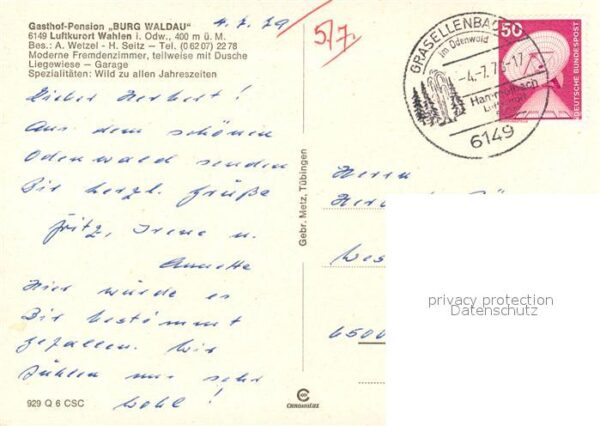 Gasthof-Pension „BURG WALDAU"
6149 Luftkurort Wahlen i. Odw., 400 m ü. M.
Bes.: A. Wetzel - H. Seitz – Tel. (0 62 07) 22 78
Moderne Fremdenzimmer, teilweise mit Dusche
Liegewiese – Garage
Spezialitäten: Wild zu allen Jahreszeiten
4. 7. 79
5/7.
Lieber Herbert!
Aus dem schönen
Odenwald senden
Dir herzl. Grüße
Fritz, Irene u.
Annette
Hier würde es
Dir bestimmt
gefallen. Wir
fühlen uns sehr
wohl!
929 Q 6 CSC
Gebr. Metz, Tübingen
GRASELLENBACH
im Odenwald
-4.-7.7
-17
6149
50
DEUTSCHE BUNDESPOST
Herrn
6500
privacy protection
Datenschutz